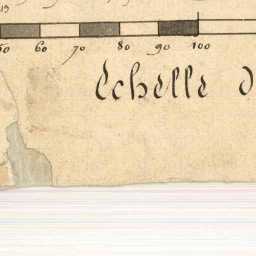 19
50 60 70 80 90 100
Echelle d